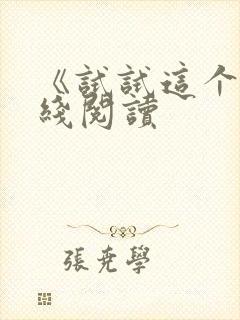 《試試這个
綫閱讀
張堯學